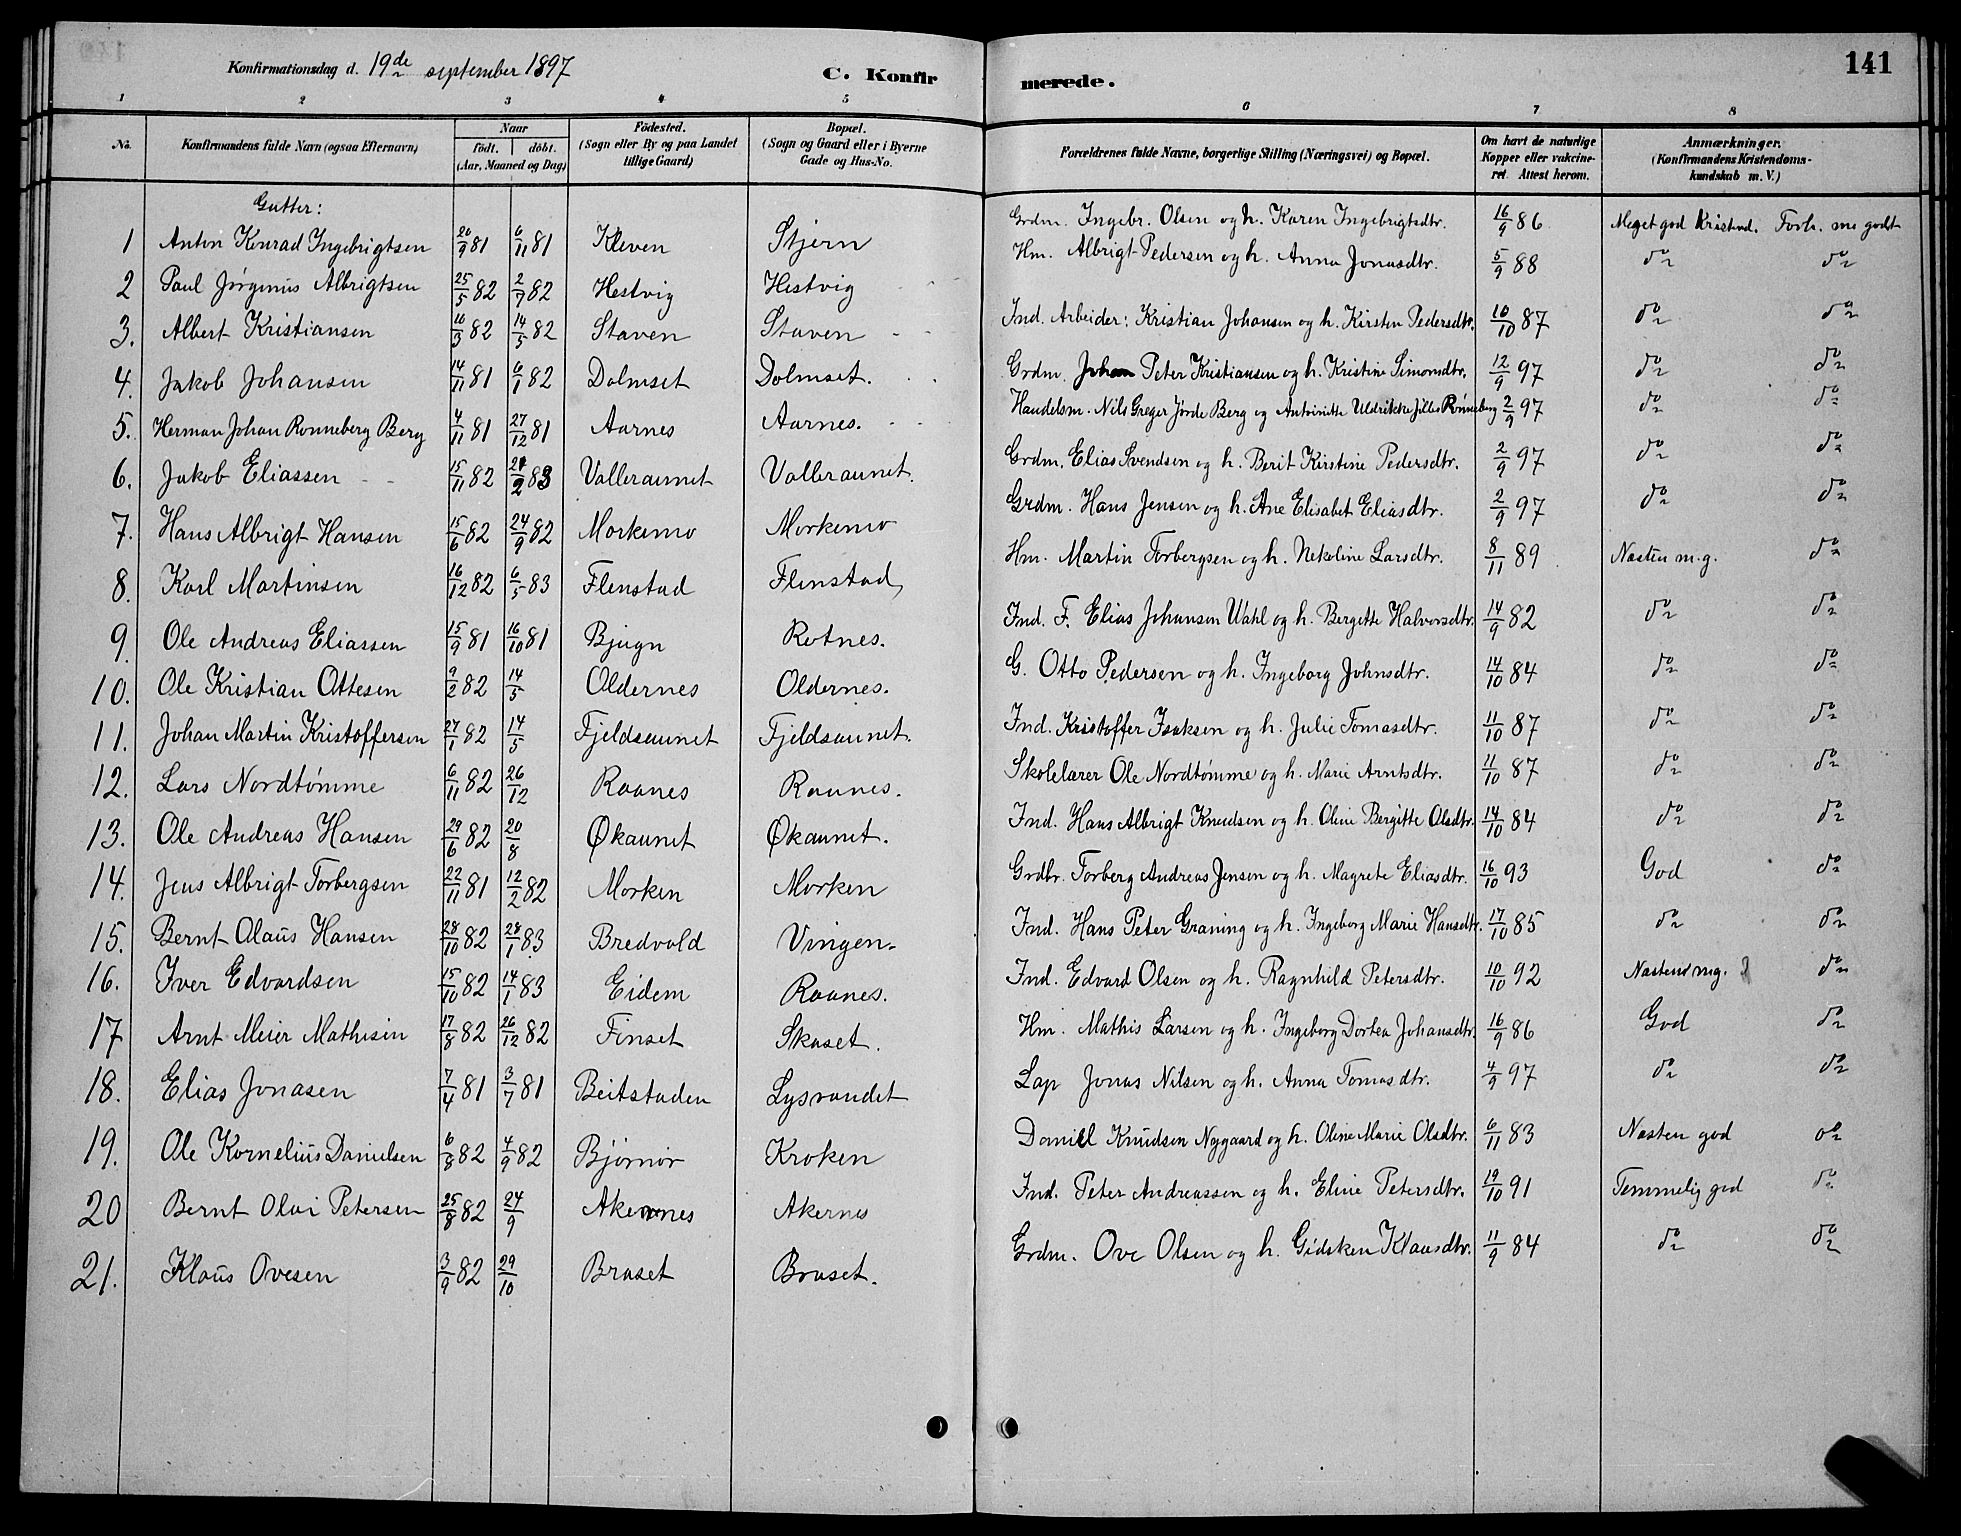 Konfirmationsdag d. 19de september 1897 C. Konfirmerede. 141
1 2 3 4 5 6 7 8
No. Konfirmandens fulde Navn (ogsaa Efternavn) Naar født. døbt. (Aar, Maaned og Dag) Fødested. (Sogn eller By og paa Landet tillige Gaard) Bopæl. (Sogn og Gaard eller i Byerne Gade og Hus-No. Forældrenes fulde Navne, borgerlige Stilling (Næringsvei) og Bopæl. Om havt de naturlige Kopper eller vakcineret. Attest herom. Anmærkninger. (Konfirmandens Kristendomskundskab m. V.)
Gutter:
1 Anton Konrad Ingebrigtsen 20/9 81 6/11 81 Kleven Stjern Grdm. Ingebr. Olsen og h. Karen Ingebrigtsdtr. 16/9 86 Meget god Kristend. Forh. me godt
2 Paul Jørginus Albrigtsen 25/5 82 2/7 82 Hestvig Hestvig Hm. Albrigt Pedersen og h. Anna Jonasdtr. 5/9 88 do do
3. Albert Kristiansen 16/3 82 14/5 82 Staven Staven Ind. Arbeider: Kristian Johansen og h. Kirsten Pedersdtr. 10/10 87 do do
4. Jakob Johansen 14/11 81 6/1 82 Dolmset Dolmset. Grdm. Johan Peter Kristiansen og h. Kristine Simonsdtr. 12/9 97 do do
5. Herman Johan Ronneberg Berg 4/11 81 27/12 81 Aarnes Aarnes. Handelsm. Nils Greger Jørde Berg og Antoinitte Uldrikke Rønneberg 2/9 97 do do
6. Jakob Eliassen 15/11 82 2/83 Valleraunet Valleraunet. Grdm. Elias Svendsen og h. Berit Kirstine Pedersdtr. 2/9 97 do do
7. Hans Albrigt Hansen 15/6 82 24/9 82 Morkemo Morkemo Grdm. Hans Jensen og h. Ane Elisabet Eliasdtr. 2/9 97 do do
8. Karl Martinsen 16/12 82 6/5 83 Flenstad Flenstad Hm. Martin Torbergsen og h. Nekoline Larsdtr. 8/11 89 Næsten m.g. do
9. Ole Andreas Eliassen 15/9 81 16/10 81 Bjugn Rotnes. Ind. F. Elias Johansen Wahl og h. Bergitte Halvorsdtr. 14/9 82 do do
10. Ole Kristian Ottesen 9/2 82 14/5 Oldernes Oldernes. G. Otto Pedersen og h. Ingeborg Johnsdtr. 14/10 84 do do
11. Johan Martin Kristoffersen 27/1 82 14/5 Fjeldsaunet Fjeldsaunet. Ind. Kristoffer Isaksen og h. Julie Tomasdtr. 11/10 87 do do
12. Lars Nordtømme 6/11 82 26/12 Raanes Raanes. Skolelærer Ole Nordtømme og h. Marie Arntsdtr. 11/10 87 do do
13. Ole Andreas Hansen 29/6 82 20/8 Økaunet Økaunet. Ind. Hans Albrigt Knudsen og h. Oline Bergitte Olsdtr. 14/10 84 do do
14. Jens Albrigt Torbergsen 22/11 81 12/2 82 Morken Morken Grdbr. Torberg Andreas Jensen og h. Magrete Eliasdtr. 16/10 93 God do
15. Bernt Olaus Hansen 28/10 82 28/1 83 Bredvold Vingen. Ind. Hans Peter Graning og h. Ingeborg Marie Hansdtr. 17/10 85 do do
16. Iver Edvardsen 15/10 82 14/1 83 Eidem Raanes. Ind. Edvard Olsen og h. Ragnhild Petersdtr. 10/10 92 Næsten mg. do
17 Arnt Meier Mathisen 17/8 82 26/12 82 Finset Skaset. Hm. Mathis Larsen og h. Ingeborg Dortea Johansdtr. 16/9 86 God do
18. Elias Jonasen 7/4 81 3/7 81 Beitstaden Lysvandet Lap Jonas Nilsen og h. Anna Tomasdtr. 4/9 97 do do
19. Ole Kornelius Danielsen 6/8 82 4/9 82 Bjørnør Kroken Daniel Knudsen Nygaard og h. Oline Marie Olsdtr. 6/11 83 Næsten god do
20 Bernt Olai Petersen 25/8 82 24/9 Akernes Akernes Ind. Peter Andreassen og h. Eline Petersdtr. 19/10 91 Temmelig god do
21. Klaus Ovesen 3/9 82 29/10 Braset Braset. Grdm. Ove Olsen og h. Gidsken Klausdtr. 11/9 84 do do